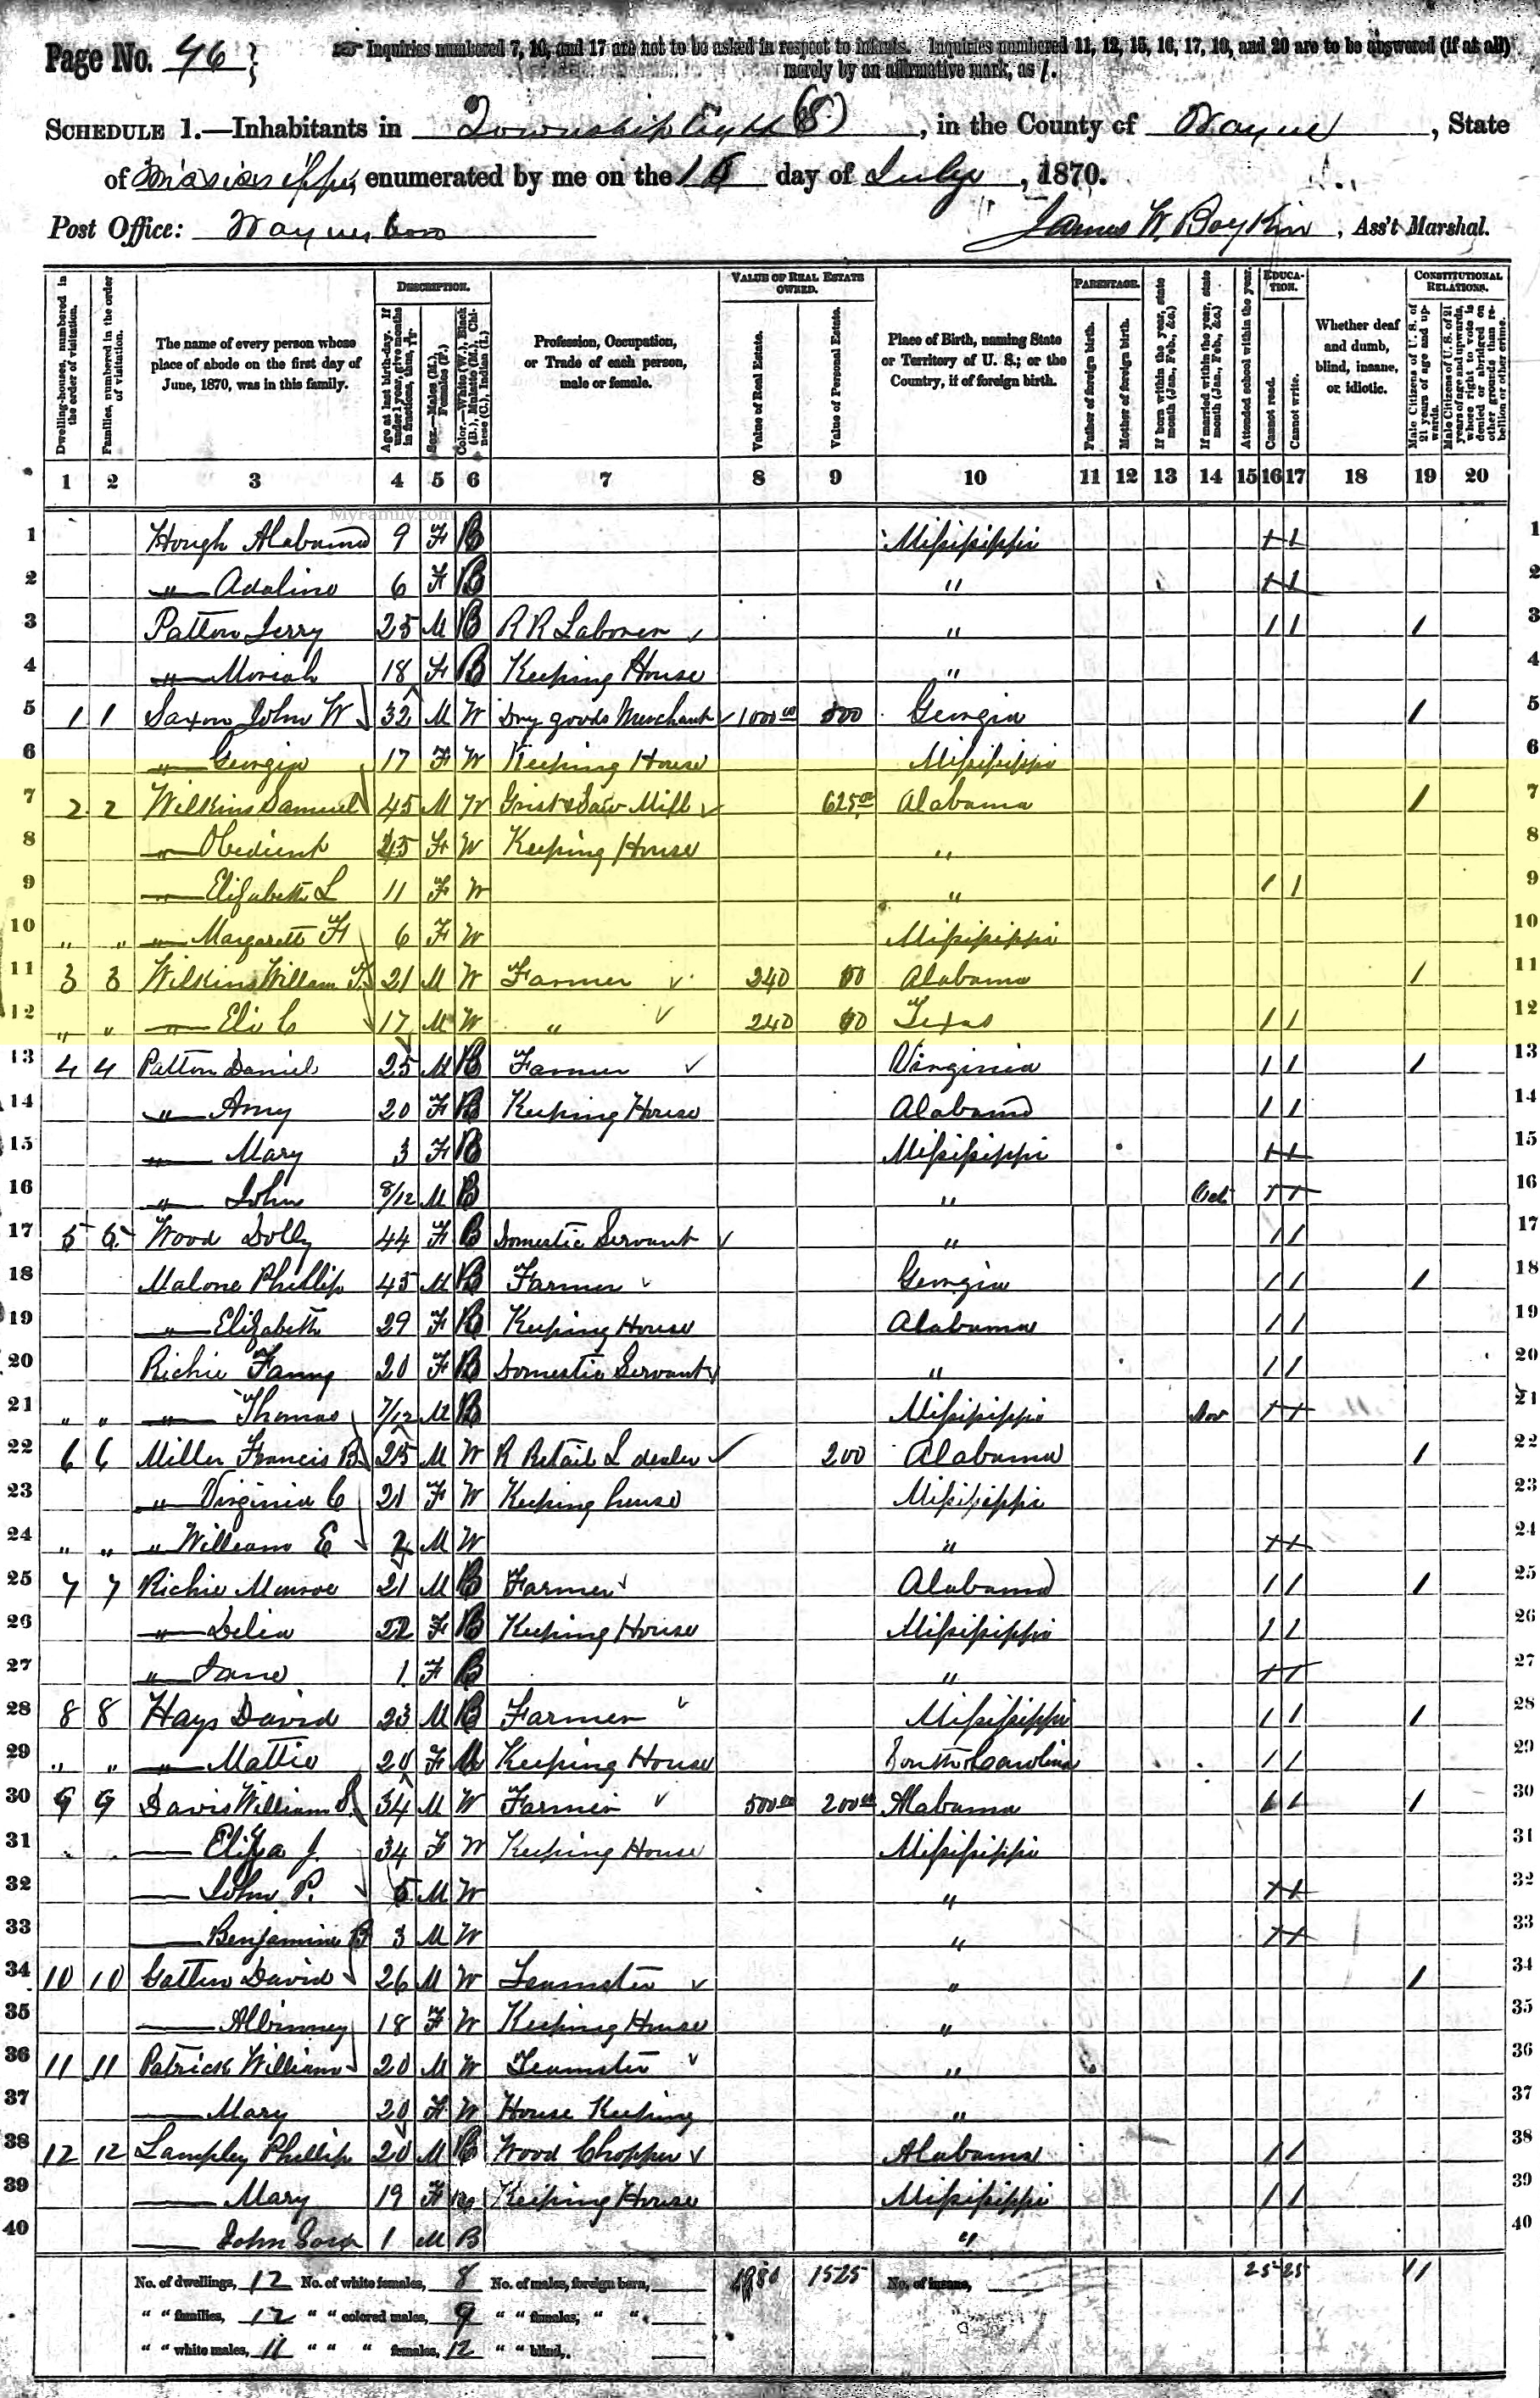 Page No. 46
Inquiries numbered 7, 16, and 17 are not to be asked in respect to infants. Inquiries numbered 11, 12, 15, 16, 17, 19, and 20 are to be answered (if at all)
merely by an affirmative mark, as /.
SCHEDULE 1.—Inhabitants in Township Eight (8), in the County of Wayne, State
of Mississippi, enumerated by me on the day of July, 1870.
Post Office: Waynesboro James W. Boykin, Ass't Marshal.
Dwelling-houses, numbered in the order of visitation.
Families, numbered in the order of visitation.
The name of every person whose place of abode on the first day of June, 1870, was in this family.
DESCRIPTION.
Age at last birth-day. If under 1 year, give months in fractions, thus,
Sex.—Males (M.), Females (F.)
Color.—White (W.), Black (B.), Mulatto (M.), Chinese (C.), Indian (I.)
Profession, Occupation, or Trade of each person, male or female.
VALUE OF REAL ESTATE OWNED.
Value of Real Estate.
Value of Personal Estate.
Place of Birth, naming State or Territory of U. S.; or the Country, if of foreign birth.
PARENTAGE.
Father of foreign birth.
Mother of foreign birth.
If born within the year, state month (Jan., Feb., &c.)
If married within the year, state month (Jan., Feb., &c.)
Attended school within the year.
EDUCATION.
Cannot read.
Cannot write.
Whether deaf and dumb, blind, insane, or idiotic.
CONSTITUTIONAL RELATIONS.
Male Citizens of U. S. of 21 years of age and upwards.
Male Citizens of U. S. of 21 years of age and upwards, whose right to vote is denied or abridged on other grounds than rebellion or other crime.
1 2 3 4 5 6 7 8 9 10 11 12 13 14 15 16 17 18 19 20
MyFamily.com
1 Hough Alabama 9 F B Missisippi 1
2 " Adaline 6 F B " 2
3 Patton Jerry 25 M B R R Laborer " / / / 3
4 " Moriah 18 F B Keeping House " 4
5 1 1 Saxon John W 32 M W Dry goods Merchant 1000 00 500 Georgia / 5
6 " Georgia 17 F W Keeping House Missisippi 6
7 2 2 Wilkins Samuel 45 M W Grist & Saw Mill 625 00 Alabama / 7
8 " Obedient F W Keeping House " 8
9 " Elizabeth L 11 F W " / / 9
10 " " " Margarett F 6 F W Missisippi 10
11 3 3 Wilkins William T. 21 M W Farmer 240 Alabama / 11
12 " " " Eli C 17 M W " 240 Texas / / 12
13 4 4 Patton Daniel 25 M B Farmer Virginia / / / 13
14 " Amy 20 F B Keeping House Alabama / / 14
15 " Mary 3 F B Missisippi 15
16 " John 8/12 M B " Oct 16
17 5 5 Wood Dolly 44 F B Domestic Servant " / / 17
18 Malone Phillip 45 M B Farmer Georgia / / / 18
19 " Elizabeth 29 F B Keeping House Alabama / / 19
20 Richie Fanny 20 F B Domestic Servant " / / 20
21 " " " Thomas 7/12 M B Missisippi Nov 21
22 6 6 Miller Francis B 25 M W R Retail L dealer 200 Alabama / 22
23 " Virginia C 21 F W Keeping house Missisippi 23
24 " " " William E M W " 24
25 7 7 Richie Monroe 21 M B Farmer Alabama / / / 25
26 " Delia 22 F B Keeping House Missisippi / / 26
27 " Jane 1 F B " 27
28 8 8 Hays David 23 M B Farmer Missisippi / / / 28
29 " " " Mattie 20 F M Keeping House South Carolina / / 29
30 9 9 Davis William S. 34 M W Farmer 500 00 200 00 Alabama / / / 30
31 Eliza J. 34 F W Keeping House Missisippi 31
32 John P. 5 M W " 32
33 Benjamine B 3 M W " 33
34 10 10 Gatlin David 26 M W Teamster " / 34
35 Albinney 18 F W Keeping House " 35
36 11 11 Patrick William 20 M W Teamster " 36
37 Mary 20 F W House Keeping " 37
38 12 12 Lampley Phillip 20 M B Wood Chopper Alabama / / 38
39 Mary 19 F Keeping House Missisippi / / 39
40 John 1 M B " 40
No. of dwellings, 12 No. of white females, 8 No. of males, foreign born, 1525 No. of insane, 25 25 11
" " families, 12 " " colored males, 9 " " females, " "
" " white males, 11 " " " females, 12 " " blind,